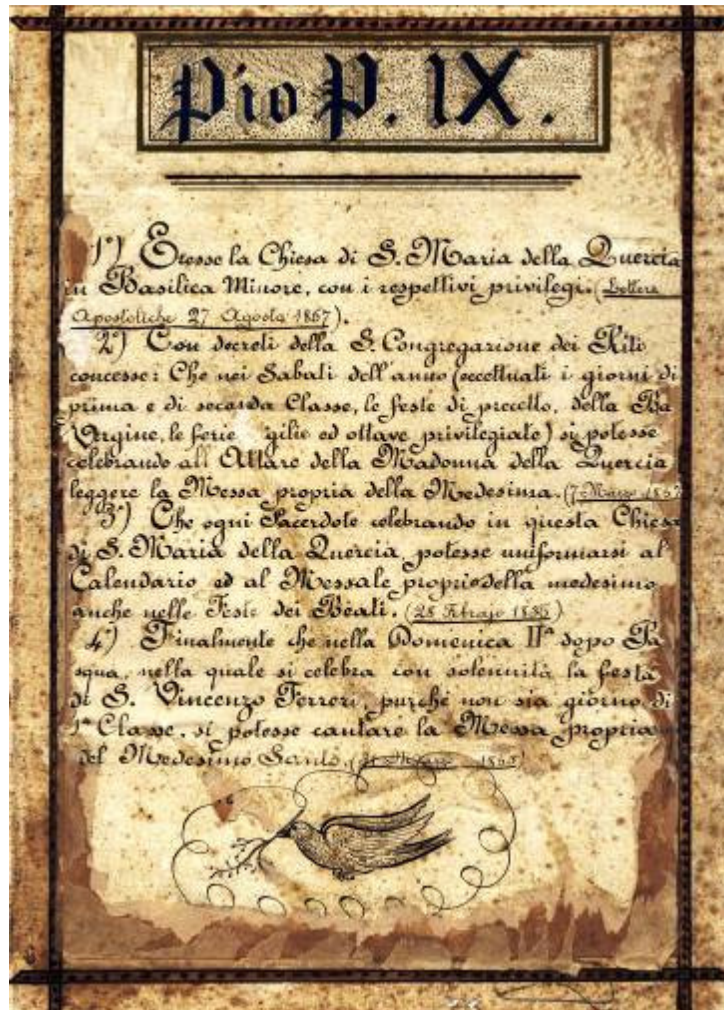 Pio P. IX.
1°) Eresse la Chiesa di S. Maria della Quercia
in Basilica Minore, con i respettivi privilegi. (Lettere
Apostoliche 27 Agosto 1867).
2°) Con decreti della S. Congregazione dei Riti
concesse: Che nei Sabati dell'anno (eccettuati i giorni di
prima e di seconda Classe, le feste di precetto, della Ba
Vergine, le ferie gilie ed ottave privilegiate) si potesse
celebrando all'Altare della Madonna della Quercia
leggere la Messa propria della Medesima. (7 Marzo 1857
3°) Che ogni Sacerdote celebrando in questa Chiesa
di S. Maria della Quercia, potesse uniformarsi al
Calendario ed al Messale proprio della medesimo
anche nelle Feste dei Beati. (28 Febrajo
4°) Finalmente che nella Domenica IIª dopo Pa
squa, nella quale si celebra con solennità la festa
di S. Vincenzo Ferreri, purché non sia giorno di
1ª Classe, si potesse cantare la Messa propria
del Medesimo Santo.